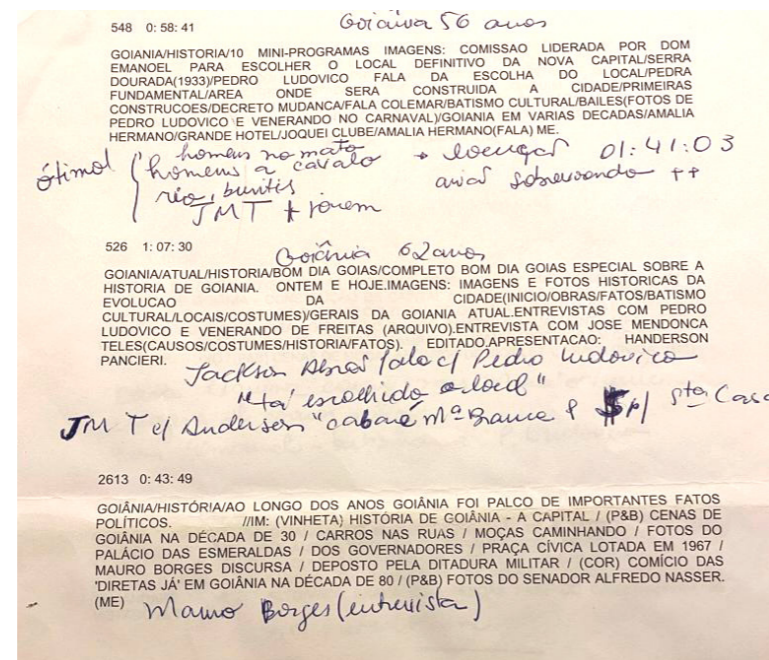 548 0: 58: 41 Goiânia 56 anos
GOIANIA/HISTORIA/10 MINI-PROGRAMAS IMAGENS: COMISSAO LIDERADA POR DOM
EMANOEL PARA ESCOLHER O LOCAL DEFINITIVO DA NOVA CAPITAL/SERRA
DOURADA(1933)/PEDRO LUDOVICO FALA DA ESCOLHA DO LOCAL/PEDRA
FUNDAMENTAL/AREA ONDE SERA CONSTRUIDA A CIDADE/PRIMEIRAS
CONSTRUCOES/DECRETO MUDANCA/FALA COLEMAR/BATISMO CULTURAL/BAILES(FOTOS DE
PEDRO LUDOVICO E VENERANDO NO CARNAVAL)/GOIANIA EM VARIAS DECADAS/AMALIA
HERMANO/GRANDE HOTEL/JOQUEI CLUBE/AMALIA HERMANO(FALA) ME.
homens no mato
ótimo! homens a cavalo → locução 01:41:03
rio, buritis avião sobrevoando ++
JMT + jovem
526 1: 07: 30 Goiânia 62 anos
GOIANIA/ATUAL/HISTORIA/BOM DIA GOIAS/COMPLETO BOM DIA GOIAS ESPECIAL SOBRE A
HISTORIA DE GOIANIA. ONTEM E HOJE.IMAGENS: IMAGENS E FOTOS HISTORICAS DA
EVOLUCAO DA CIDADE(INICIO/OBRAS/FATOS/BATISMO
CULTURAL/LOCAIS/COSTUMES)/GERAIS DA GOIANIA ATUAL.ENTREVISTAS COM PEDRO
LUDOVICO E VENERANDO DE FREITAS (ARQUIVO).ENTREVISTA COM JOSE MENDONCA
TELES(CAUSOS/COSTUMES/HISTORIA/FATOS). EDITADO.APRESENTACAO: HANDERSON
PANCIERI.
Jackson Abrão fala c/ Pedro Ludovico
"tá escolhido o local"
JMT c/ Anderson "cabaré Mª Branca e $ p/ Sta Casa
2613 0: 43: 49
GOIÂNIA/HISTÓRIA/AO LONGO DOS ANOS GOIÂNIA FOI PALCO DE IMPORTANTES FATOS
POLÍTICOS. //IM: (VINHETA) HISTÓRIA DE GOIÂNIA - A CAPITAL / (P&B) CENAS DE
GOIÂNIA NA DÉCADA DE 30 / CARROS NAS RUAS / MOÇAS CAMINHANDO / FOTOS DO
PALÁCIO DAS ESMERALDAS / DOS GOVERNADORES / PRAÇA CÍVICA LOTADA EM 1967 /
MAURO BORGES DISCURSA / DEPOSTO PELA DITADURA MILITAR / (COR) COMÍCIO DAS
'DIRETAS JÁ' EM GOIÂNIA NA DÉCADA DE 80 / (P&B) FOTOS DO SENADOR ALFREDO NASSER.
(ME) Mauro Borges (entrevista)